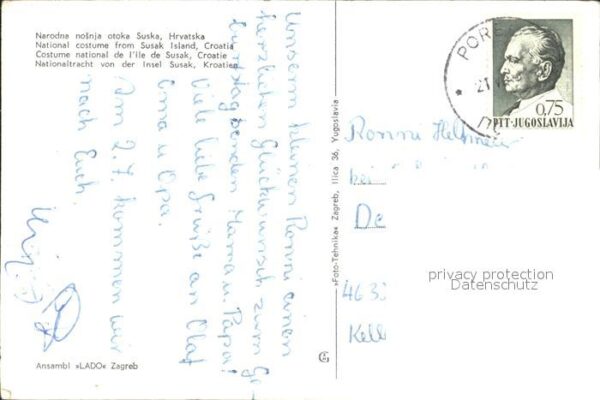 Narodna nošnja otoka Suska, Hrvatska
National costume from Susak Island, Croatia
Costume national de l'île de Susak, Croatie
Nationaltracht von der Insel Susak, Kroatien
Unserm kleinen Ronni einen
herzlichen Glückwunsch zum Ge-
burtstag senden Mama u. Papa!
Viele liebe Grüße an Olaf
Oma u. Opa.
Am 2.7. kommen wir
nach Euch.
Ansambl »LADO« Zagreb
»Foto-Tehnika« Zagreb, Ilica 36, Yugoslavia
PORE
21
0,75
PTT-JUGOSLAVIJA
Ronni
bei
De
463
Kell
privacy protection
Datenschutz